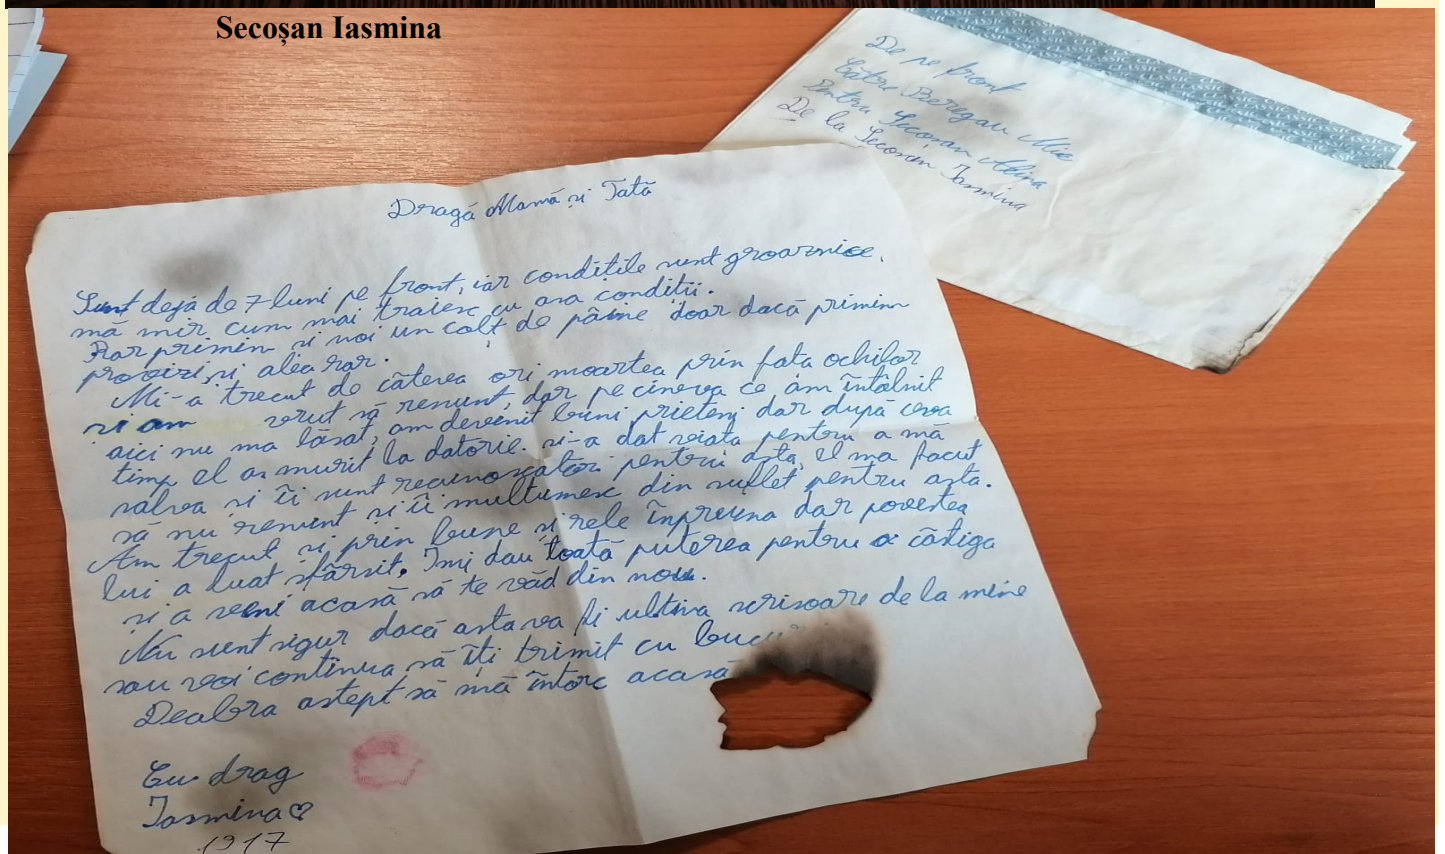 Secoșan Iasmina
De pe front
Către Beregau Mic
Pentru Secoșan Alina
De la Secosan Iasmina
Dragă Mamă și Tată
Sunt deja de 7 luni pe front, iar condițile sunt groaznice,
mă mir cum mai traiesc cu asa condiții.
Rar primim si noi un colț de pâine doar dacă primim
provizi, si alea rar.
Mi-a trecut de câteva ori moartea prin fata ochilor
si am vrut să renunt, dar pe cineva ce am întâlnit
aici nu ma lăsat, am devenit buni prieteni dar după ceva
timp el a murit la datorie. si-a dat viata pentru a mă
salva si îi sunt recunoscător pentru asta, el ma facut
să nu renunt si îi multumesc din suflet pentru asta.
Am trecut si prin bune și rele înpreuna dar povestea
lui a luat sfârsit. Imi dau toată puterea pentru a câstiga
si a veni acasă să te văd din nou.
Nu sunt sigur dacă asta va fi ultima scrisoare de la mine
sau voi continua să îți trimit cu
Deabea astept să mă întorc acasă
Cu drag
Iasmina ♡
1917